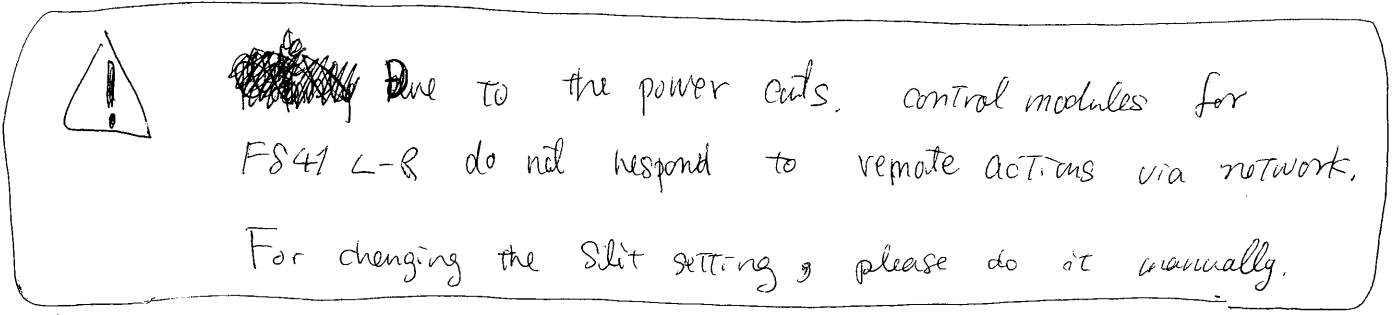 Due to the power cuts. control modules for
FS41 L-R do not respond to remote actions via network.
For changing the Slit setting, please do it manually.